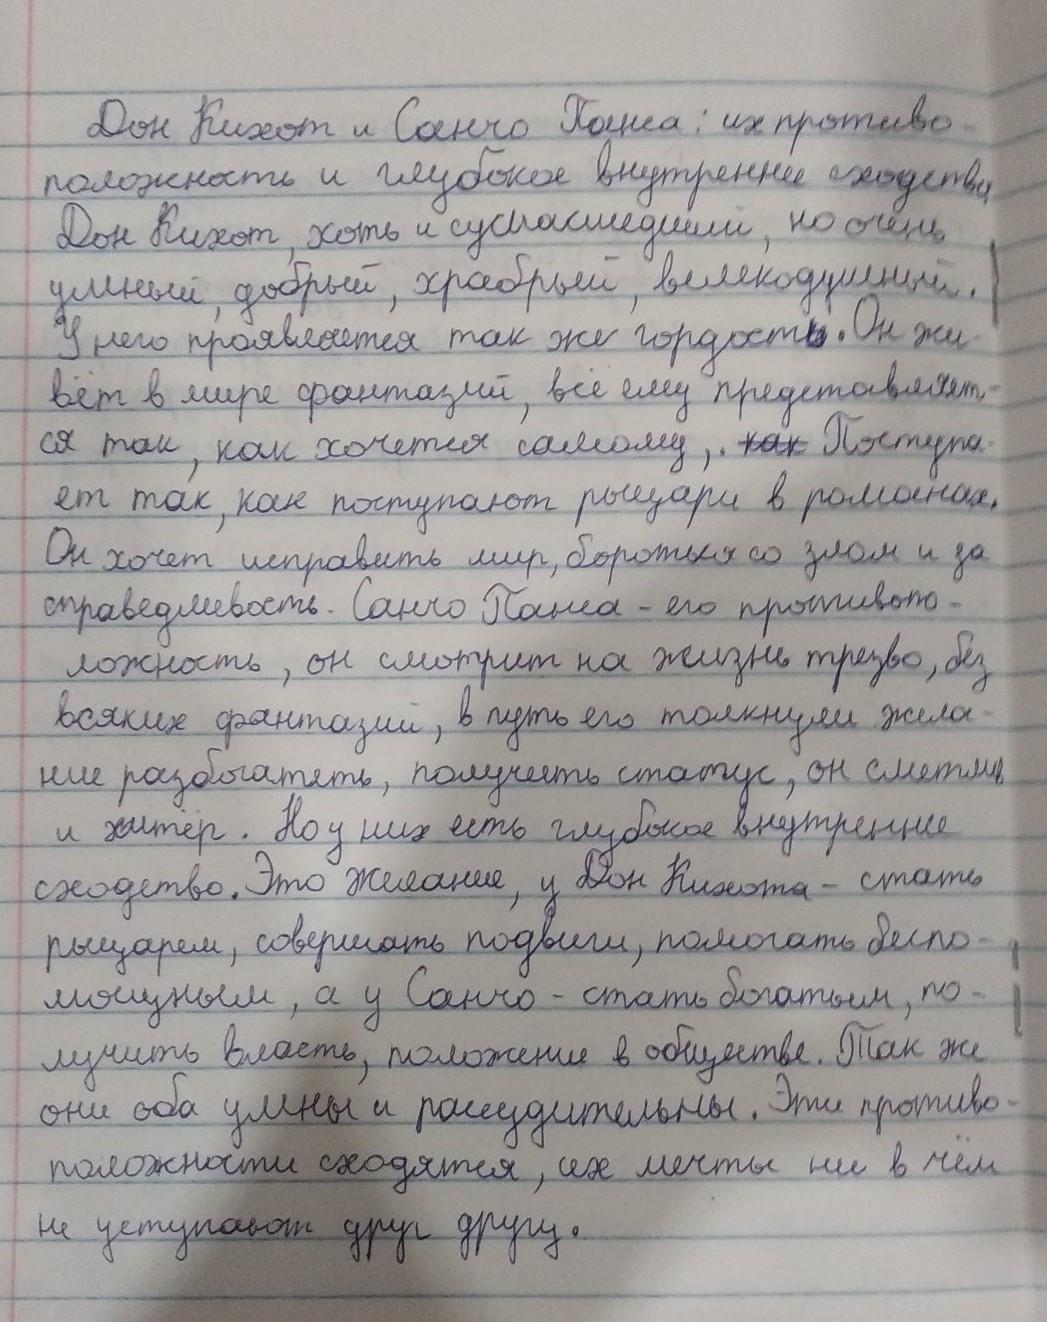 Дон Кихот и Санчо Панса: их противо-
положность и глубокое внутреннее сходство
Дон Кихот, хоть и сумасшедший, но очень
умный, добрый, храбрый, великодушный.
У него проявляется так же гордость. Он жи-
вёт в мире фантазий, всё ему представляет-
ся так, как хочется самому,. как Поступа-
ет так, как поступают рыцари в романах.
Он хочет исправить мир, бороться со злом и за
справедливость. Санчо Панса - его противопо-
ложность, он смотрит на жизнь трезво, без
всяких фантазий, в путь его толкнули жела-
ние разбогатеть, получить статус, он сметлив
и хитёр. Но у них есть глубокое внутреннее
сходство. Это желание, у Дон Кихота - стать
рыцарем, совершать подвиги, помогать беспо-
мощным, а у Санчо - стать богатым, по-
лучить власть, положение в обществе. Так же
они оба умны и рассудительны. Эти противо-
положности сходятся, их мечты ни в чём
не уступают друг другу.